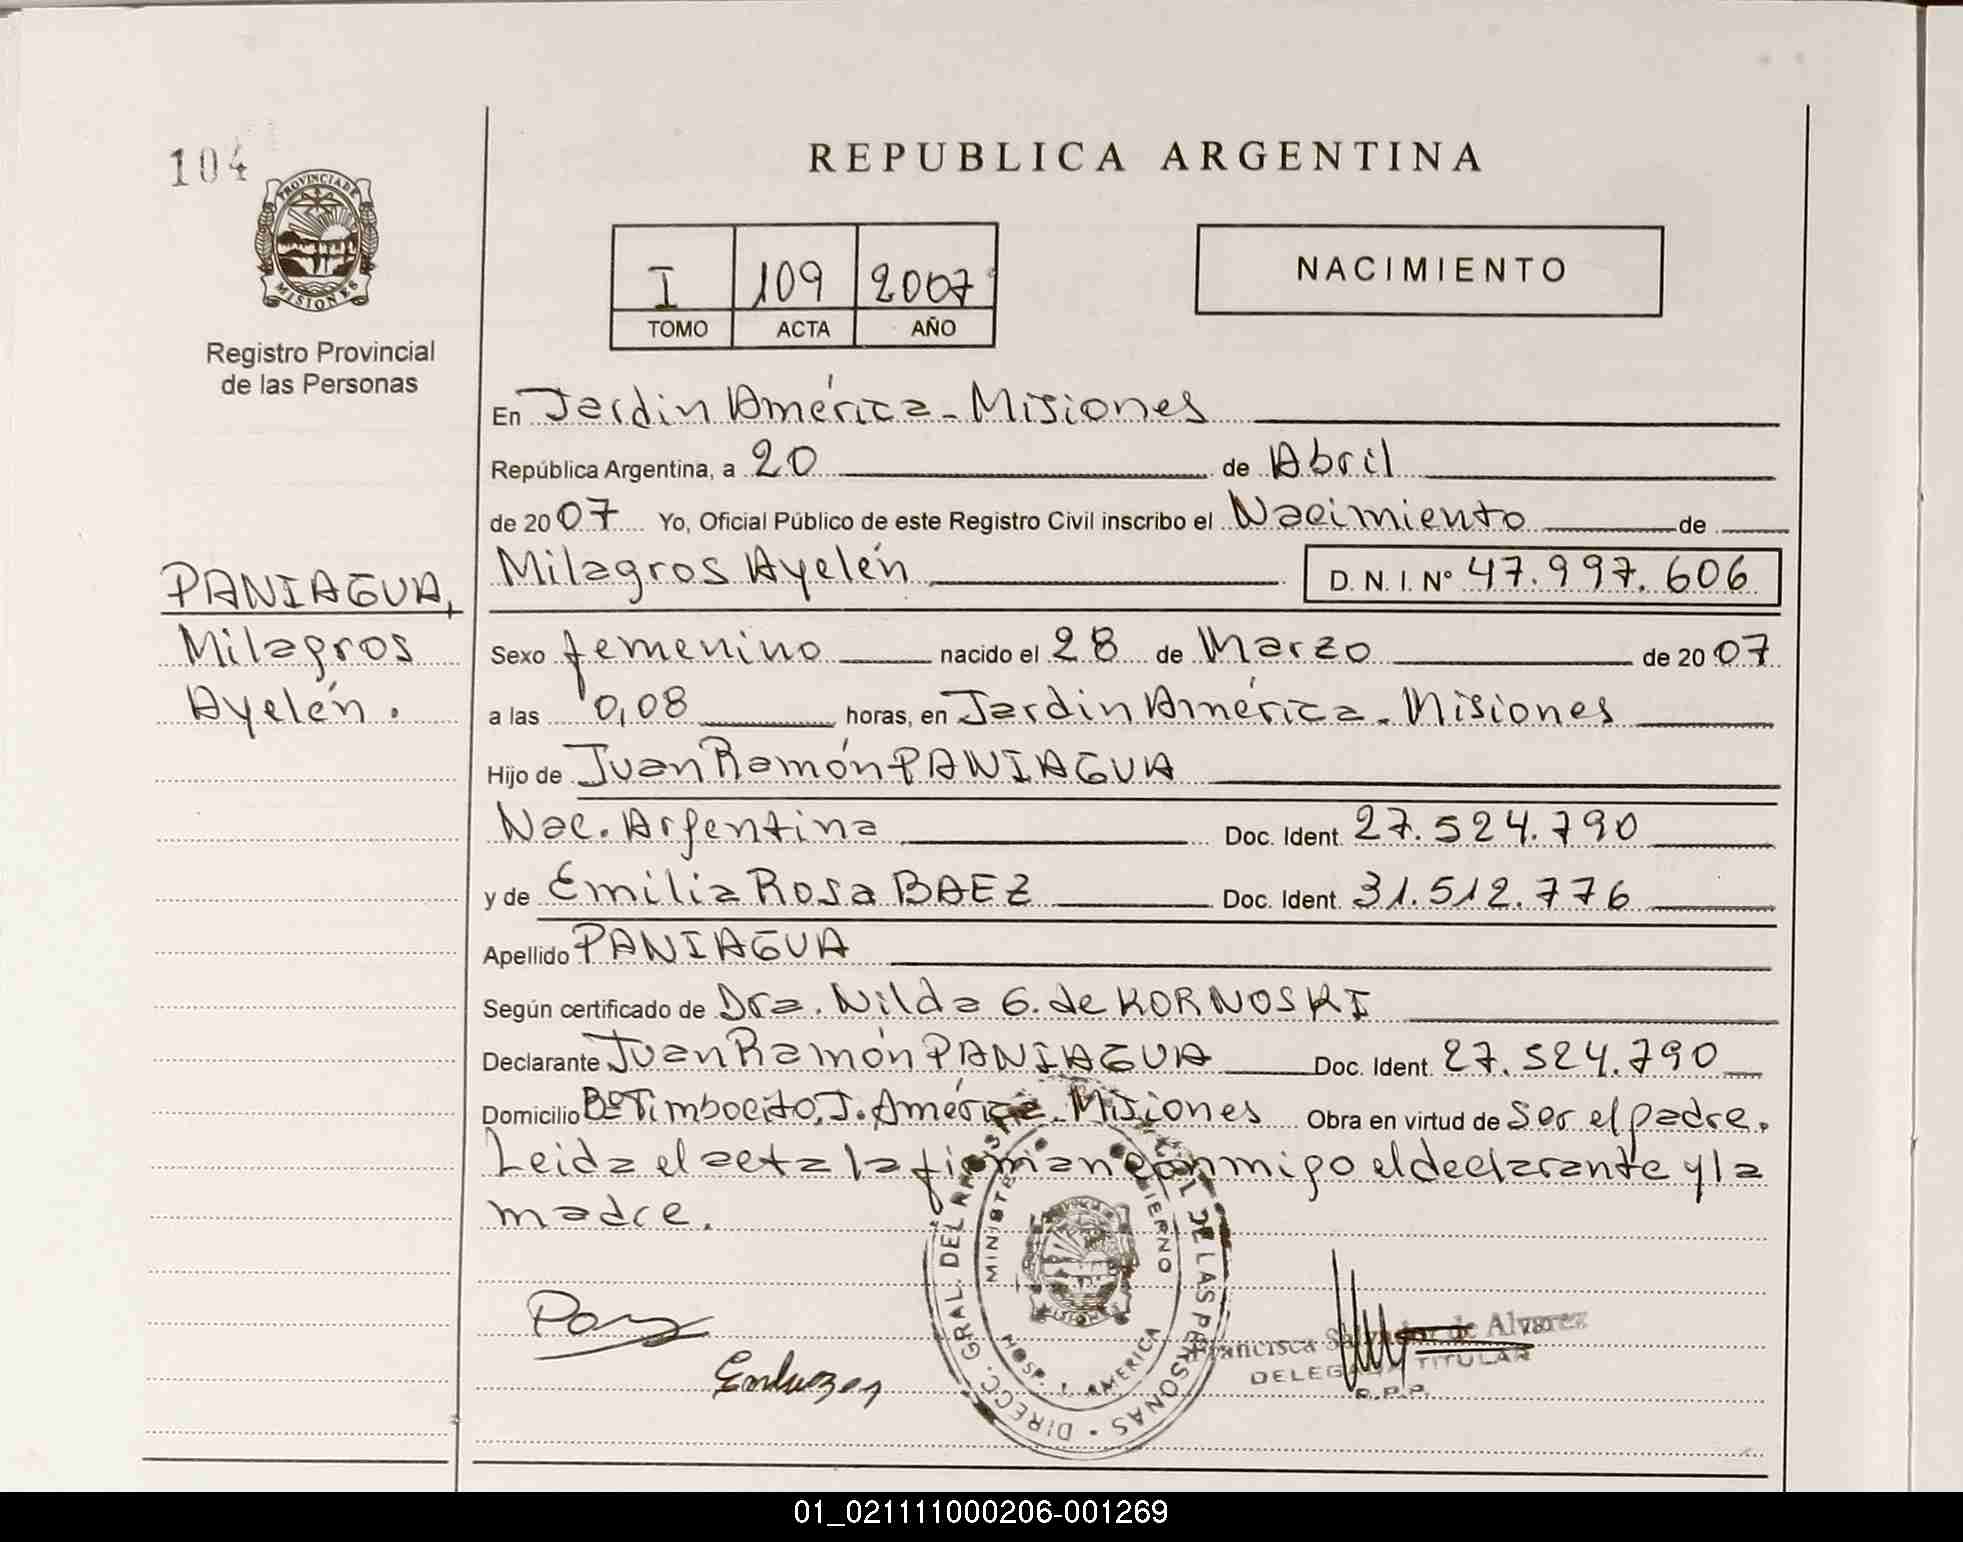 104
PROVINCIA DE
MISIONES
Registro Provincial
de las Personas
PANIAGUA,
Milagros
Ayelén.
REPUBLICA ARGENTINA
I 109 2007
TOMO ACTA AÑO
NACIMIENTO
En Jardin América - Misiones
República Argentina, a 20 de Abril
de 2007 Yo, Oficial Público de este Registro Civil inscribo el Nacimiento de
Milagros Ayelén D. N. I. Nº 47.997.606
Sexo femenino nacido el 28 de Marzo de 2007
a las 0,08 horas, en Jardin América - Misiones
Hijo de Juan Ramón PANIAGUA
Nac. Argentina Doc. Ident. 27.524.790
y de Emilia Rosa BAEZ Doc. Ident. 31.512.776
Apellido PANIAGUA
Según certificado de Dra. Nilda G. de KORNOSKI
Declarante Juan Ramón PANIAGUA Doc. Ident. 27.524.790
Domicilio Bº Timbocito, J. América - Misiones Obra en virtud de Ser el padre.
Leida el acta la firman conmigo el declarante y la
madre.
DIRECC. GRAL. DEL DE LAS PERSONAS
MINISTERIO GOBIERNO
HOSP. AMERICA
MISIONES
Francisca Salvador de Alvarez
DELEGADA TITULAR
R.P.P.
01_021111000206-001269